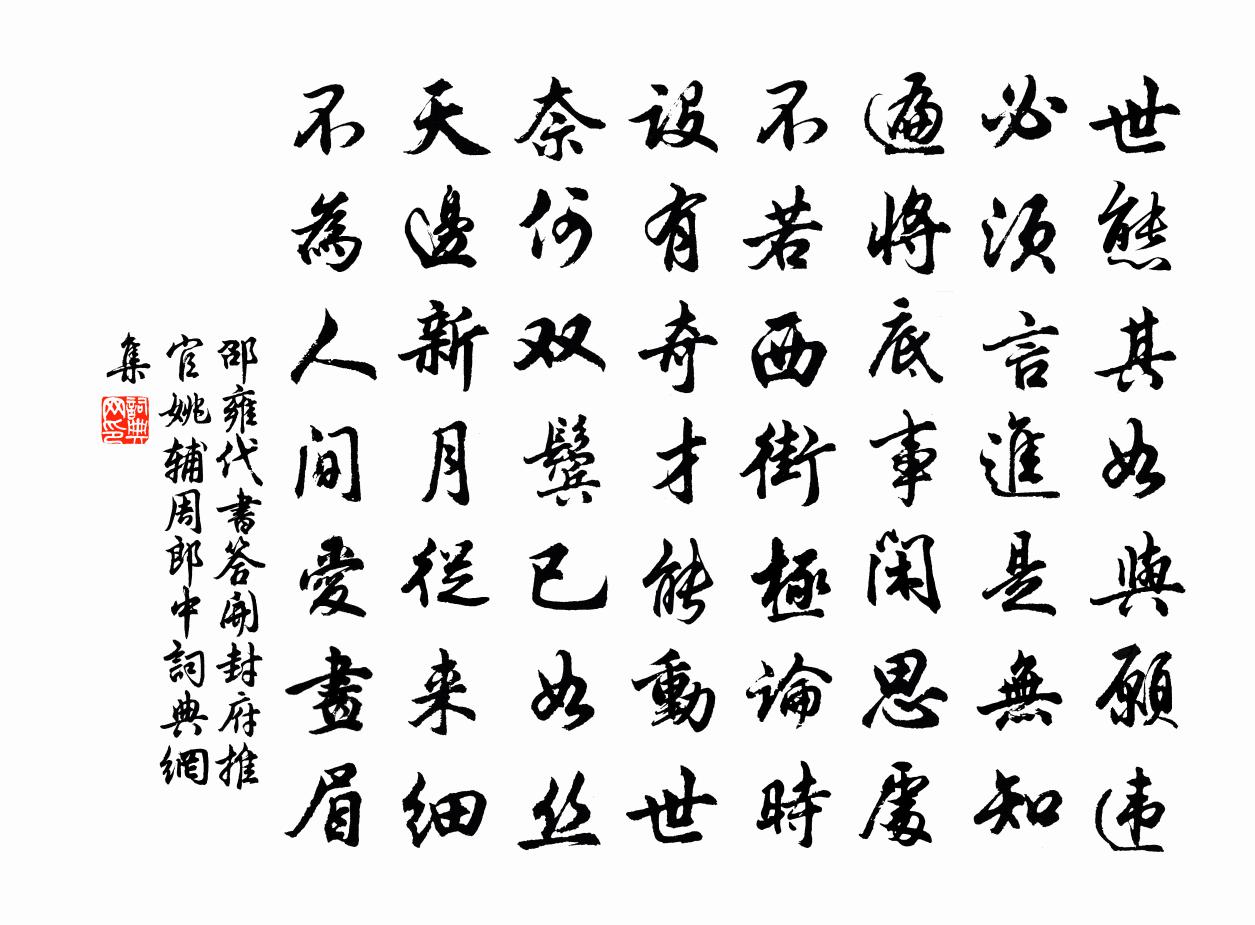 世態其如與願違
必須言進是無知
遍將底事閑思慮
不若西街極論時
設有奇才能動世
奈何双鬓已如丝
天邊新月從来细
不為人間愛畫眉
邵雍代書答開封府推
官姚辅周郎中詞典網
集
詞典网印